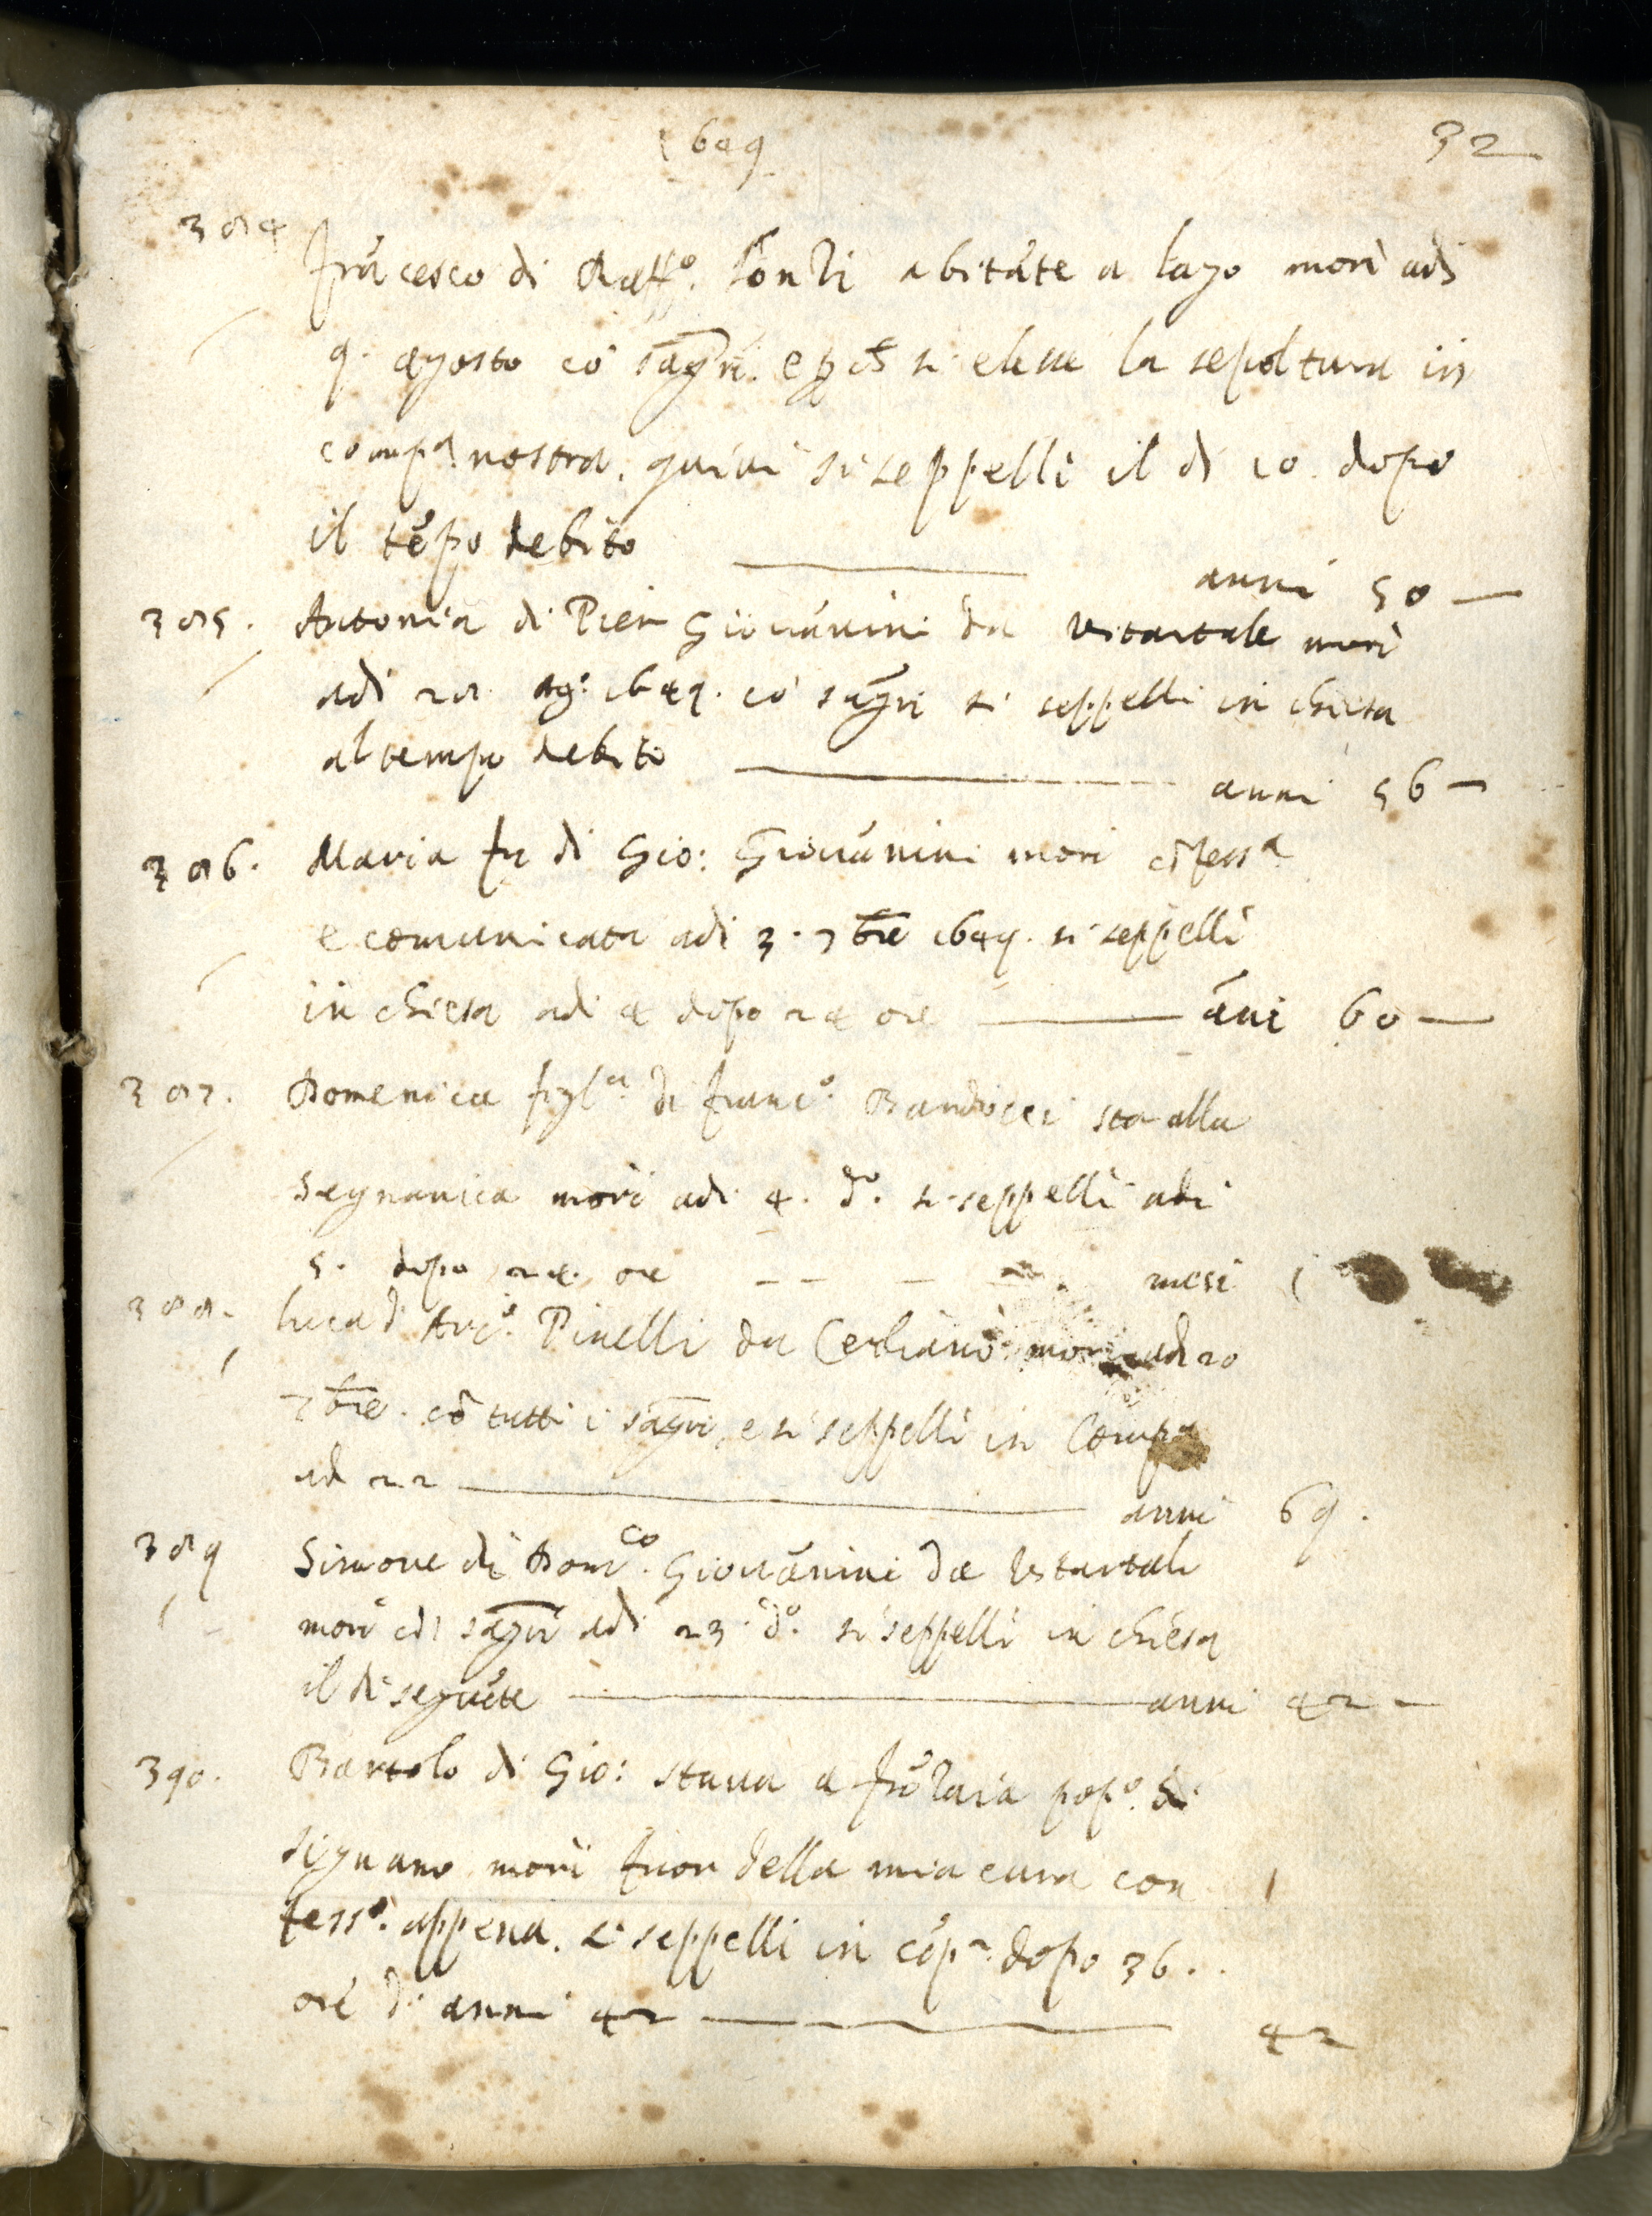 1649
32
384 Frãcesco di Raff.o Conti abitãte a lago morì adi
9. agosto cõ sagrị. e p ch si elesse la sepoltura in
comp.a nostra. quivi si seppellì il dì 10. dopo
il tẽpo debito anni 50
385. Antonia di Pier Giovãnini da Vitartale morì
adi 28. ag.o 1649. cõ sagri si seppelli in chiesa
al tempo debito anni 56
386. Maria fu di Gio: Giovãnini mori cõfess.a
e comunicata adi 3. 7bre 1649. si seppellì
in chiesa adi 4 dopo 24 ore ãni 60
387. Domenica figl.a di Franc.o Banducci sta alla
Segnanica morì adi 4. d.o si seppellì adi
5. dopo 24. ore mesi 1
388. Luca d' Pinelli da Cerliano morì adi 20
7bre. cõ tutti i sagri, e si seppellì in Comp.a
ad 22 anni 69.
389 Simone di Dom.co Giovãnini da Vitartali
morì cõ sagri adi 23. d.o si seppellì in chiesa
il di seguẽte anni 42
390. Bartolo di Gio: stava a pop.o di
Signano morì fuor della mia cura con
fess.o appena. si seppellì in cõp.a dopo 36.
ore di anni 42 42